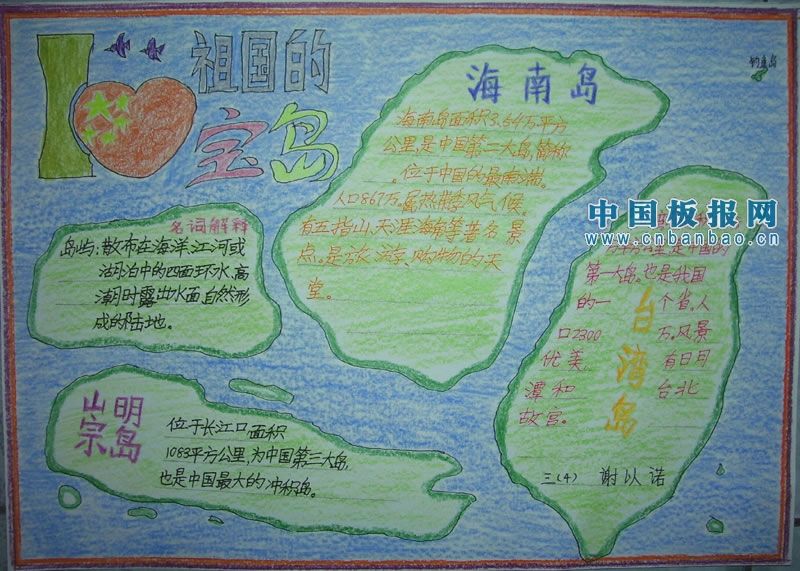 I
祖国的
宝岛
钓鱼岛
海南岛
海南岛面积3.54万平方
公里,是中国第二大岛,简称
位于中国的最南端。
人口867万,属热带季风气候。
有五指山、天涯海角等著名景
点。是旅游、购物的天
堂。
名词解释
岛屿:散布在海洋、江河或
湖泊中的四面环水、高
潮时露出水面、自然形
成的陆地。
崇明岛
位于长江口面积
1083平方公里,为中国第三大岛,
也是中国最大的冲积岛。
中国板报网
www.cnbanbao.cn
是中国的
第一大岛。也是我国
的一个省,人
口2300万。风景
优美,有日月
潭和台北
故宫。
台湾岛
三(4) 谢以诺